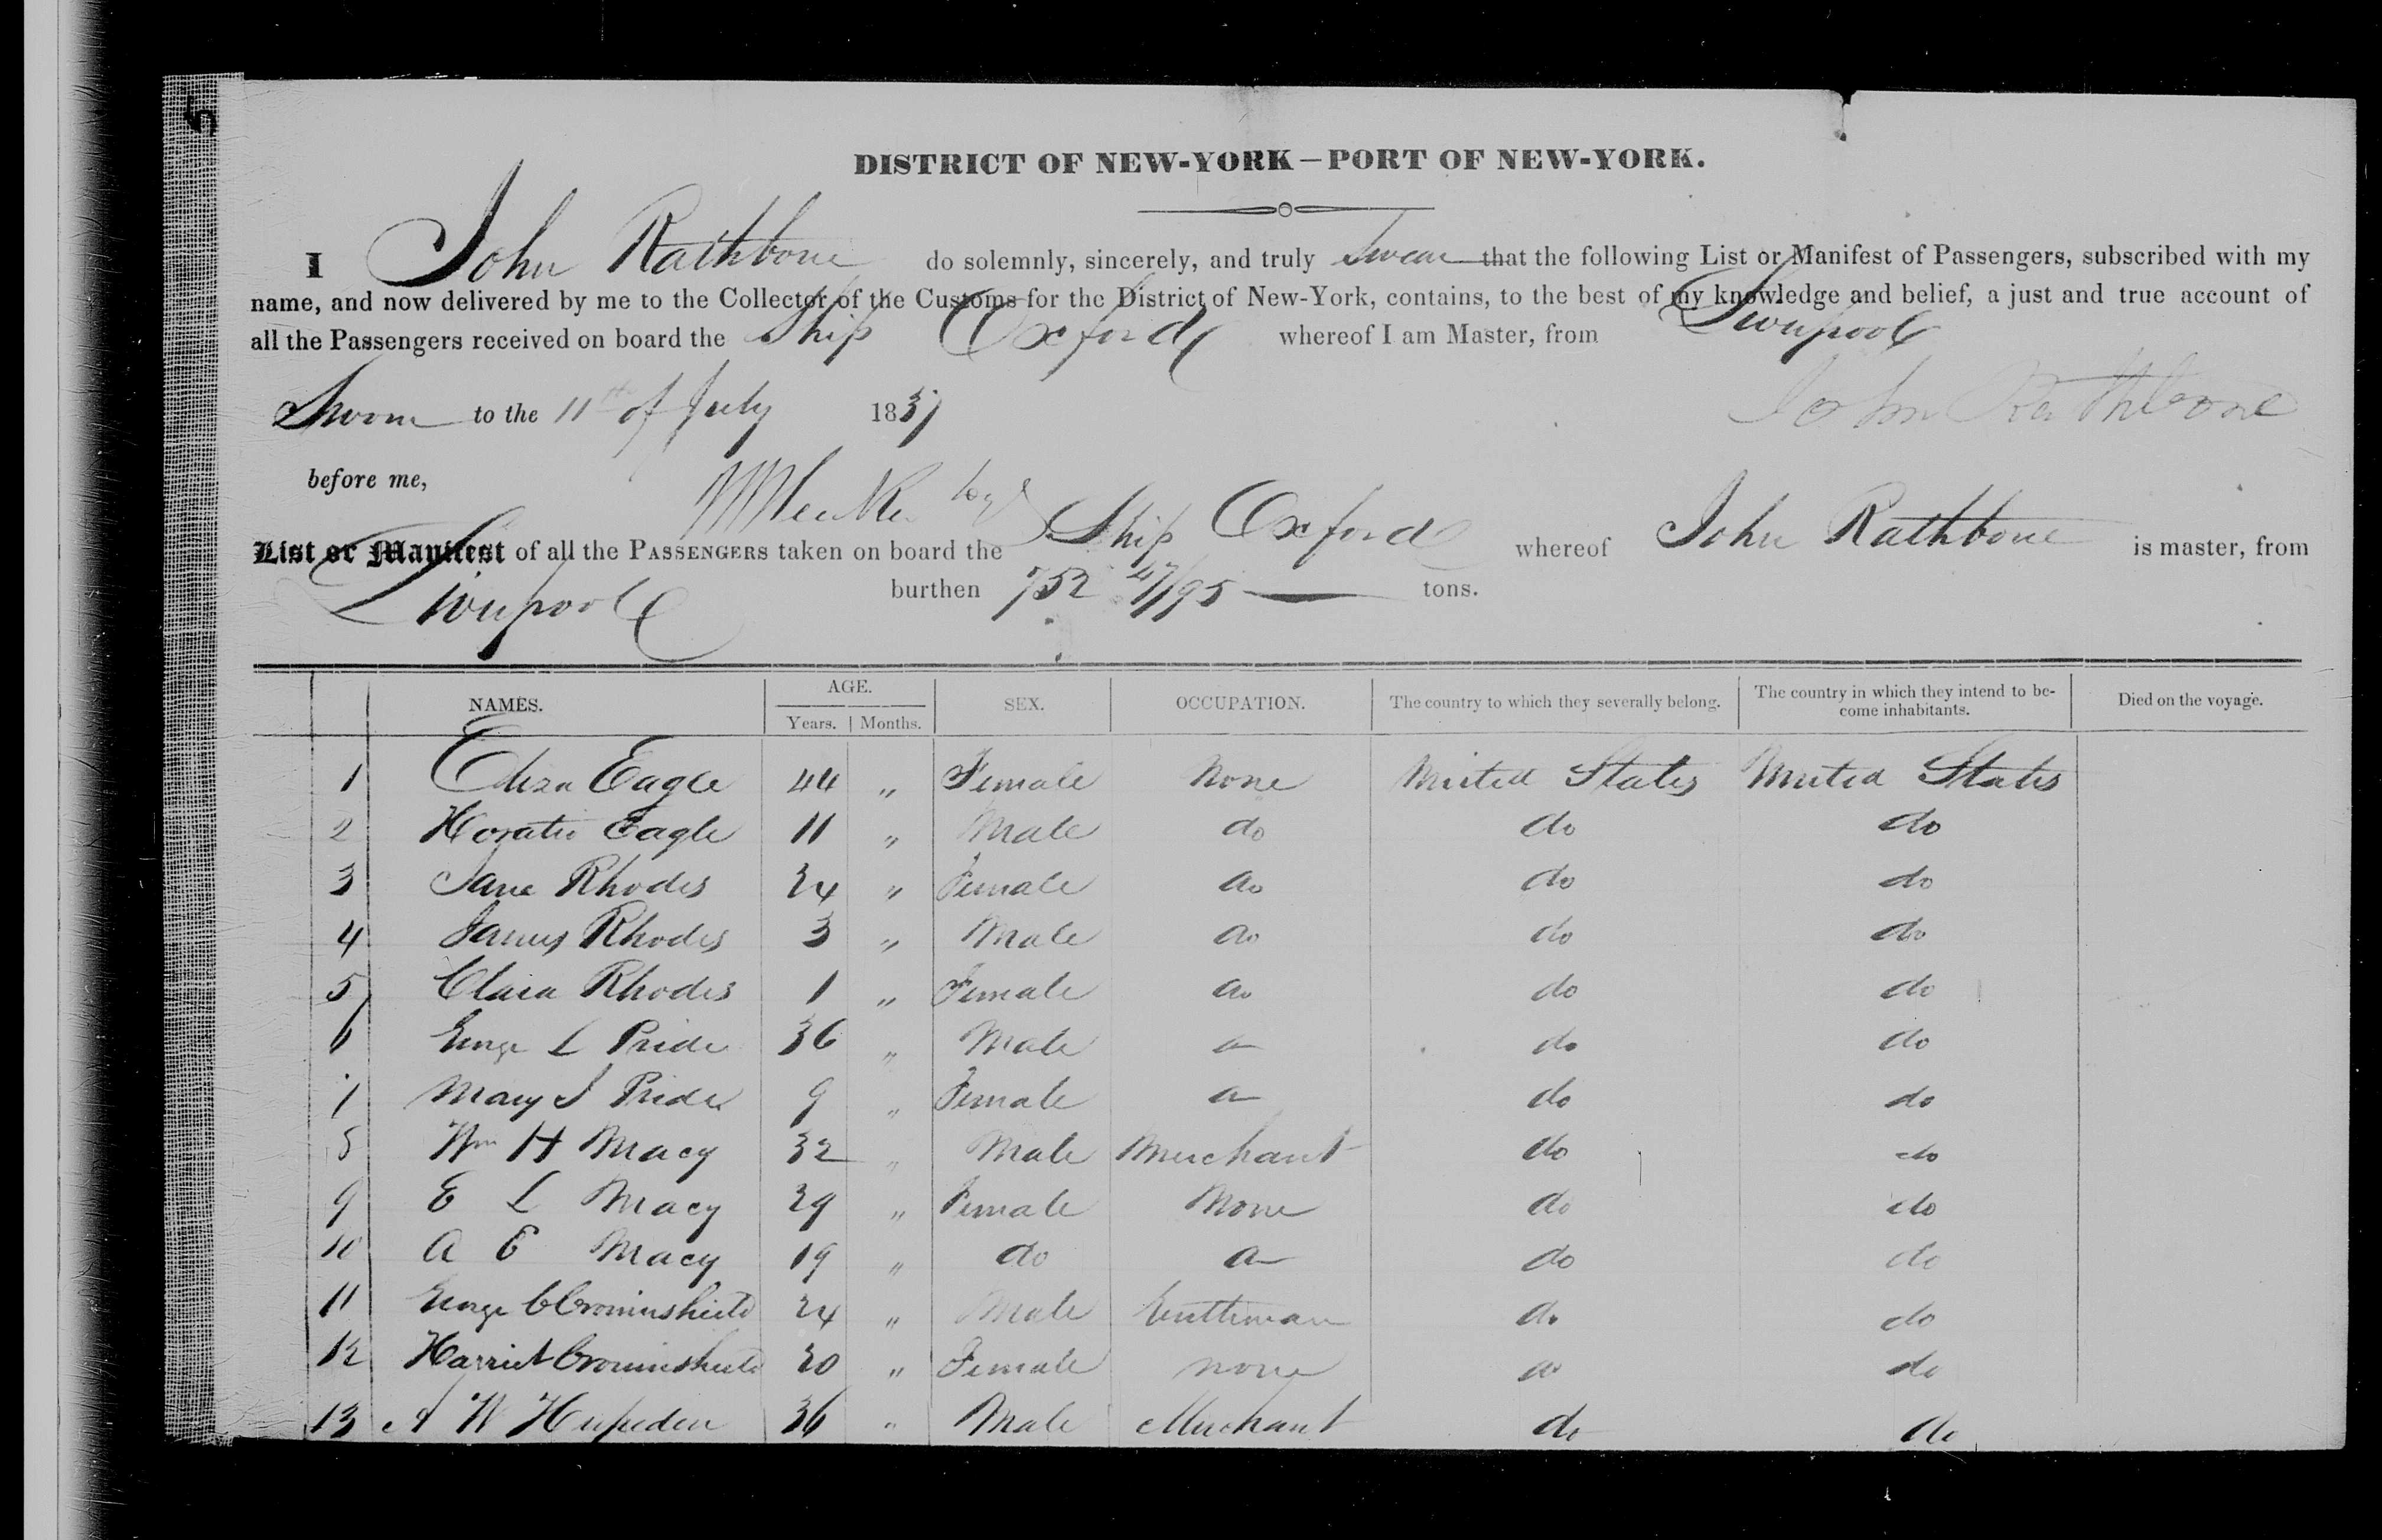 5
DISTRICT OF NEW-YORK—PORT OF NEW-YORK.
I John Rathbone do solemnly, sincerely, and truly Swear that the following List or Manifest of Passengers, subscribed with my
name, and now delivered by me to the Collector of the Customs for the District of New-York, contains, to the best of my knowledge and belief, a just and true account of
all the Passengers received on board the Ship Oxford whereof I am Master, from Liverpool
Sworn to the 11th of July 1837 John Rathbone
before me,
List or Manifest of all the PASSENGERS taken on board the Ship Oxford whereof John Rathbone is master, from
Liverpool burthen 752 47/95 tons.
NAMES. AGE. Years. Months. SEX. OCCUPATION. The country to which they severally belong. The country in which they intend to become inhabitants. Died on the voyage.
1 Eliza Eagle 44 „ Female None United States United States
2 Horatio Eagle 11 „ Male do do do
3 Jane Rhodes 24 „ Female do do do
4 James Rhodes 3 „ Male do do do
5 Clara Rhodes 1 „ Female do do do
6 George L Pride 36 „ Male do do do
7 Mary S Pride 9 „ Female do do do
8 Wm H Macy 32 „ Male Merchant do do
9 E L Macy 29 „ Female None do do
10 A E Macy 19 „ do do do do
11 George C Crowninshield 24 „ Male Gentleman do do
12 Harriet Crowninshield 20 „ Female none do do
13 A W 36 „ Male Merchant do do